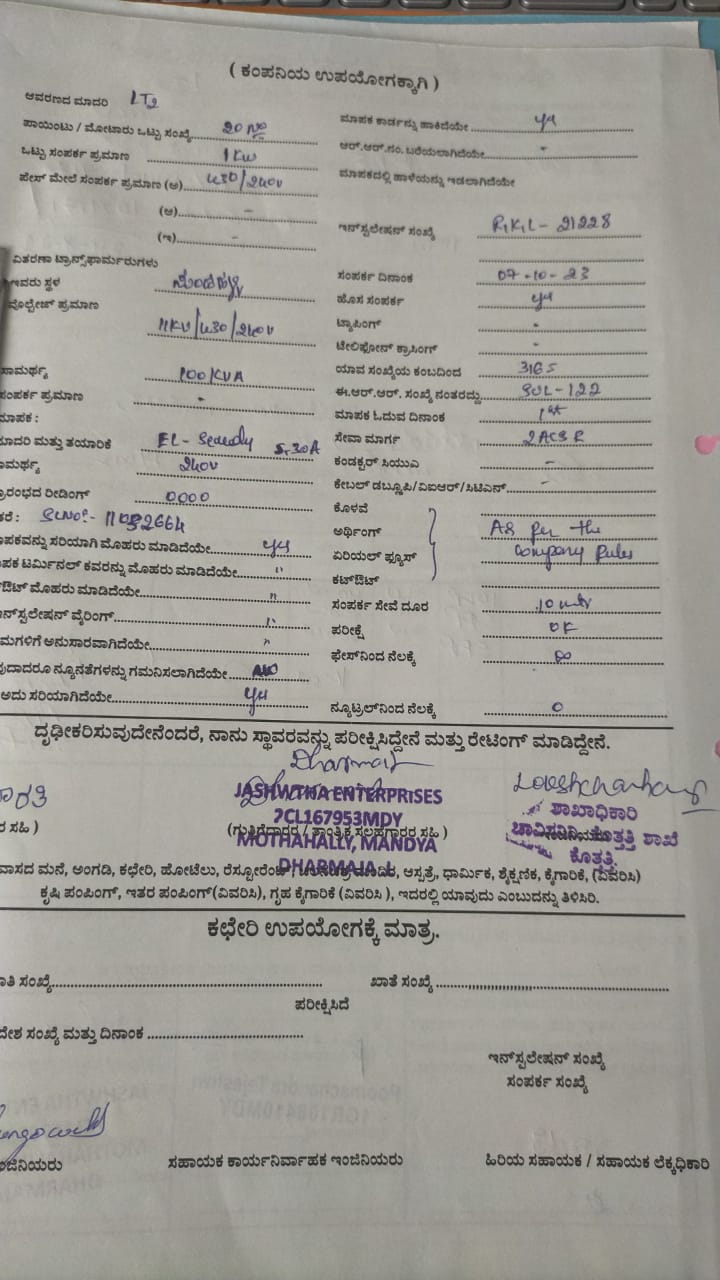 ( ಕಂಪನಿಯ ಉಪಯೋಗಕ್ಕಾಗಿ )
ಆವರಣದ ಮಾದರಿ LT2
ಮಾಪಕ ಕಾರ್ಡನ್ನು ಹಾಕಿದೆಯೇ
ಪಾಯಿಂಟು / ಮೋಟಾರು ಒಟ್ಟು ಸಂಖ್ಯೆ 20 No
ಆರ್.ಆರ್.ನಂ. ಬರೆಯಲಾಗಿದೆಯೇ -
ಒಟ್ಟು ಸಂಪರ್ಕ ಪ್ರಮಾಣ 1 KW
ಮಾಪಕದಲ್ಲಿ ಹಾಳೆಯನ್ನು ಇಡಲಾಗಿದೆಯೇ
ಪೇಸ್ ಮೇಲೆ ಸಂಪರ್ಕ ಪ್ರಮಾಣ (ಅ) 430/240V
(ಆ) -
ಇನ್‌ಸ್ಟಲೇಷನ್ ಸಂಖ್ಯೆ 21228
(ಇ) -
ವಿತರಣಾ ಟ್ರಾನ್ಸ್‌ಫಾರ್ಮರುಗಳು
ಇವರು ಸ್ಥಳ
ಸಂಪರ್ಕ ದಿನಾಂಕ 07-10-23
ವೊಲ್ಟೇಜ್ ಪ್ರಮಾಣ 11KV/430/240V
ಹೊಸ ಸಂಪರ್ಕ
ಟ್ಯಾಪಿಂಗ್ -
ಟೆಲಿಫೋನ್ ಕ್ರಾಸಿಂಗ್ -
ಸಾಮರ್ಥ್ಯ 100KVA
ಯಾವ ಸಂಖ್ಯೆಯ ಕಂಬದಿಂದ
ಸಂಪರ್ಕ ಪ್ರಮಾಣ -
ಈ.ಆರ್.ಆರ್. ಸಂಖ್ಯೆ ನಂತರದ್ದು
ಮಾಪಕ :
ಮಾಪಕ ಓದುವ ದಿನಾಂಕ 1st
ಮಾದರಿ ಮತ್ತು ತಯಾರಿಕೆ 5-30A
ಸೇವಾ ಮಾರ್ಗ 2ACSR
ಸಾಮರ್ಥ್ಯ 240V
ಕಂಡಕ್ಟರ್ ಸಿಯುಎ -
ಪ್ರಾರಂಭದ ರೀಡಿಂಗ್ 0000
ಕೇಬಲ್ ಡಬ್ಲ್ಯೂಪಿ/ವಿಐಆರ್/ಸಿಟಿಎಸ್ -
ಕೊಳವೆ
ಅರ್ಥಿಂಗ್ As per the
ಏರಿಯಲ್ ಫ್ಯೂಸ್ Company Rules
ಕಟ್‌ಔಟ್
ಮಾಪಕವನ್ನು ಸರಿಯಾಗಿ ಮೊಹರು ಮಾಡಿದೆಯೇ
ಮಾಪಕ ಟರ್ಮಿನಲ್ ಕವರನ್ನು ಮೊಹರು ಮಾಡಿದೆಯೇ "
ಕಟ್‌ಔಟ್ ಮೊಹರು ಮಾಡಿದೆಯೇ "
ಇನ್‌ಸ್ಟಲೇಷನ್ ವೈರಿಂಗ್ "
ಸಂಪರ್ಕ ಸೇವೆ ದೂರ 10 mtr
ನಿಯಮಗಳಿಗೆ ಅನುಸಾರವಾಗಿದೆಯೇ "
ಪರೀಕ್ಷೆ OK
ಯಾವುದಾದರೂ ನ್ಯೂನತೆಗಳನ್ನು ಗಮನಿಸಲಾಗಿದೆಯೇ NO
ಫೇಸ್‌ನಿಂದ ನೆಲಕ್ಕೆ
ಅದು ಸರಿಯಾಗಿದೆಯೇ
ನ್ಯೂಟ್ರಲ್‌ನಿಂದ ನೆಲಕ್ಕೆ 0
ದೃಢೀಕರಿಸುವುದೇನೆಂದರೆ, ನಾನು ಸ್ಥಾವರವನ್ನು ಪರೀಕ್ಷಿಸಿದ್ದೇನೆ ಮತ್ತು ರೇಟಿಂಗ್ ಮಾಡಿದ್ದೇನೆ.
JASHWTHA ENTERPRISES
7CL167953MDY
(ಗುತ್ತಿಗೆದಾರರ / ತಾಂತ್ರಿಕ ಸಲಹಗಾರರ ಸಹಿ )
MOTHAHALLY, MANDYA
DHARMAJA
ಶಾಖಾಧಿಕಾರಿ
ಕೊತ್ತತ್ತಿ ಶಾಖೆ
ಕೊತ್ತತ್ತಿ.
ವಾಸದ ಮನೆ, ಅಂಗಡಿ, ಕಛೇರಿ, ಹೋಟೆಲು, ರೆಸ್ಟೋರೆಂಟ್, ಆಸ್ಪತ್ರೆ, ಧಾರ್ಮಿಕ, ಶೈಕ್ಷಣಿಕ, ಕೈಗಾರಿಕೆ, (ವಿವರಿಸಿ)
ಕೃಷಿ ಪಂಪಿಂಗ್, ಇತರ ಪಂಪಿಂಗ್(ವಿವರಿಸಿ), ಗೃಹ ಕೈಗಾರಿಕೆ (ವಿವರಿಸಿ ), ಇದರಲ್ಲಿ ಯಾವುದು ಎಂಬುದನ್ನು ತಿಳಿಸಿರಿ.
ಕಛೇರಿ ಉಪಯೋಗಕ್ಕೆ ಮಾತ್ರ.
ಸಂಖ್ಯೆ
ಖಾತೆ ಸಂಖ್ಯೆ
ಪರೀಕ್ಷಿಸಿದೆ
ಸಂಖ್ಯೆ ಮತ್ತು ದಿನಾಂಕ
ಇನ್‌ಸ್ಟಲೇಷನ್ ಸಂಖ್ಯೆ
ಸಂಪರ್ಕ ಸಂಖ್ಯೆ
ಇಂಜಿನಿಯರು
ಸಹಾಯಕ ಕಾರ್ಯನಿರ್ವಾಹಕ ಇಂಜಿನಿಯರು
ಹಿರಿಯ ಸಹಾಯಕ / ಸಹಾಯಕ ಲೆಕ್ಕಧಿಕಾರಿ